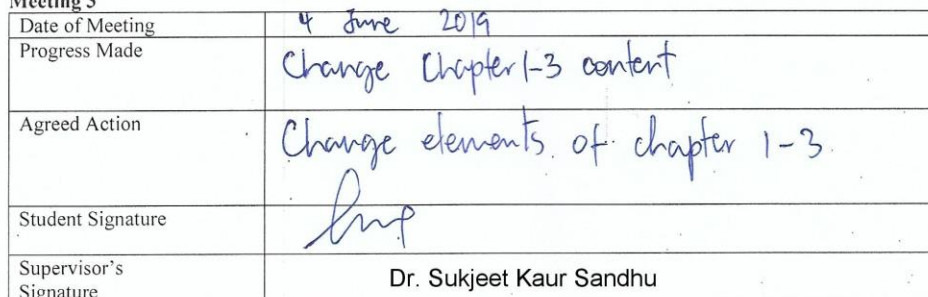 Meeting 3
Date of Meeting 4 June 2019
Progress Made Change Chapter 1-3 content
Agreed Action Change elements of chapter 1-3
Student Signature
Supervisor's Dr. Sukjeet Kaur Sandhu
Signature